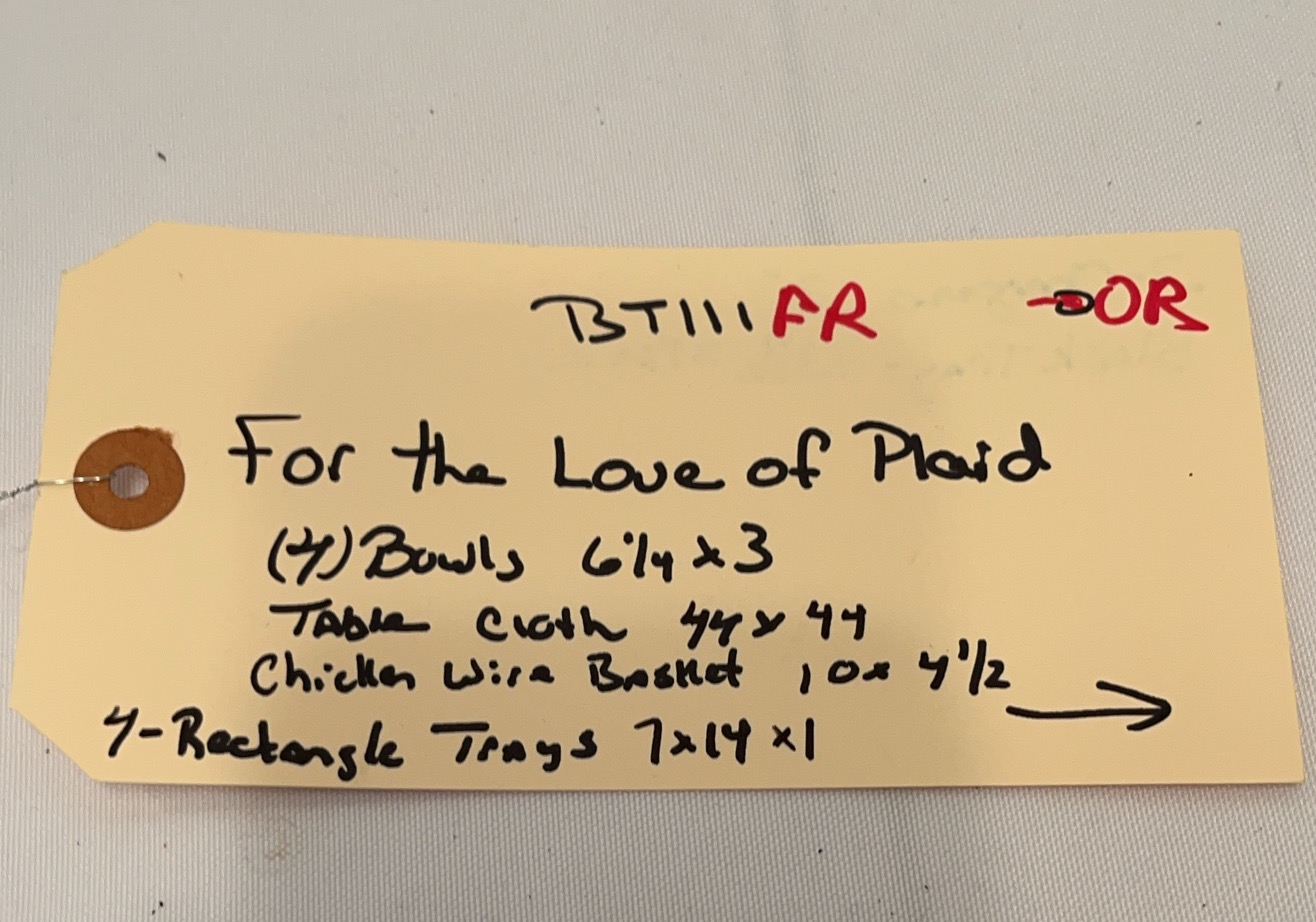 BT111FR →OR
For the Love of Plaid
(4) Bowls 6 1/4 x 3
Table Cloth 44 x 44
Chicken Wire Basket 10 x 4 1/2 →
4-Rectangle Trays 7x14x1